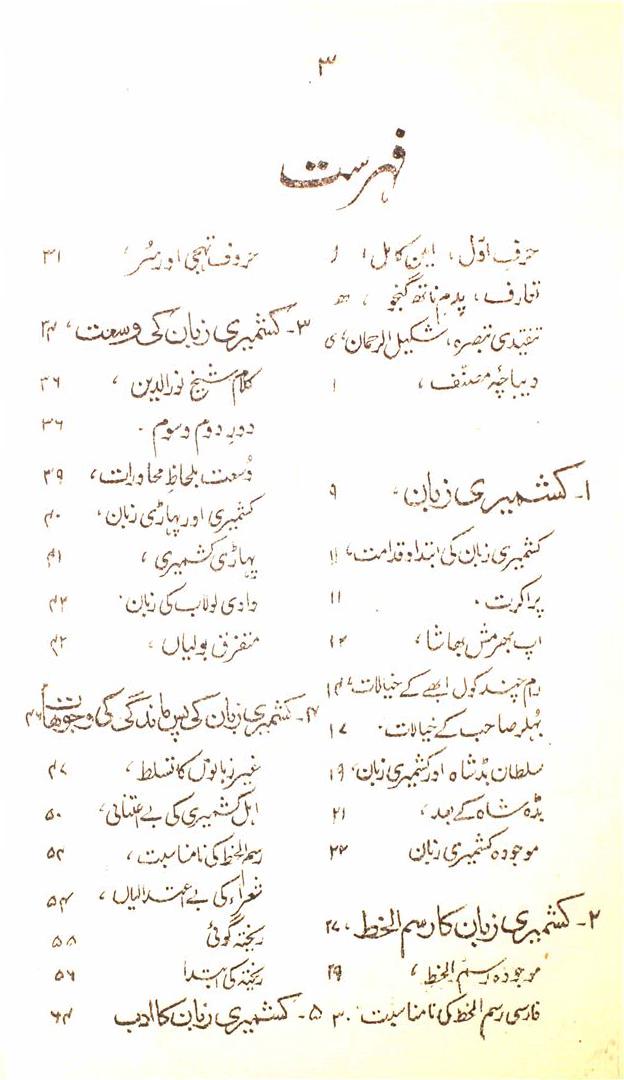 ۳
فہرست
حرفِ اوّل، امین کامل، ر
تعارف، پدم ناتھ گنجو،
تنقیدی تبصرہ، شکیل الرحمان، ی
دیباچۂ مصنّف، ۱
۱۔ کشمیری زبان، ۹
کشمیری زبان کی ابتدا و قدامت، ۱۱
پراکرت، ۱۱
اپ بھرمش بھاشا، ۱۲
رم چند کول ابھے کے خیالات، ۱۴
بُہلر صاحب کے خیالات، ۱۷
سلطان بڈشاہ اور کشمیری زبان، ۱۹
بڈہ شاہ کے بعد، ۲۱
موجودہ کشمیری زبان ۲۳
۲۔ کشمیری زبان کا رسم الخط، ۲۷
موجودہ رسم الخط، ۲۹
فارسی رسم الخط کی نامناسبت ۳۰
حروف تہجی اور سُر، ۳۱
۳۔ کشمیری زبان کی وسعت، ۳۴
کلام شیخ نورالدین، ۳۶
دورِ دوم و سوم۔ ۳۶
وُسعت بلحاظِ محاورات، ۳۹
کشمیری اور پہاڑی زبان، ۴۰
پہاڑی کشمیری، ۴۱
وادی لولاب کی زبان۔ ۴۲
متفرق بولیاں، ۴۲
۴۔ کشمیری زبان کی پس ماندگی کی وجوہات ۴۶
غیر زبانوں کا تسلط، ۴۷
اہل کشمیری کی بے اعتنائی، ۵۰
رسم الخط کی نامناسبت، ۵۲
شعراء کی بے اعتدالیاں، ۵۴
ریختہ گوئی ۵۵
ریختہ کی ابتدا ۵۶
۵۔ کشمیری زبان کا ادب ۶۴